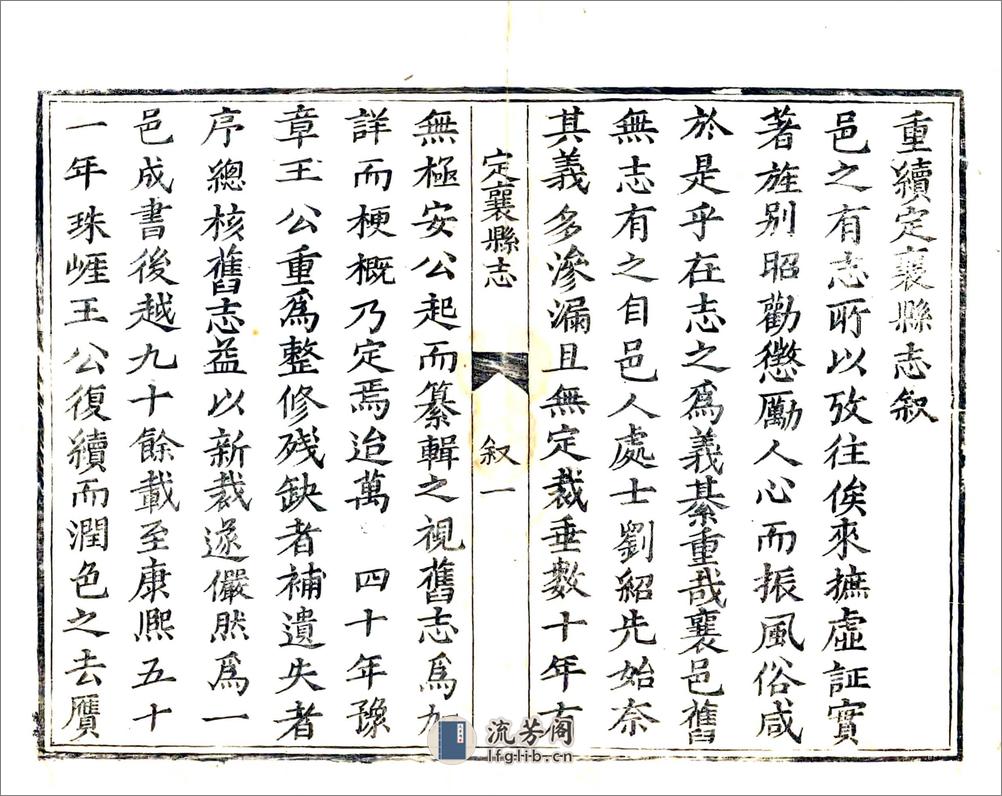 重續定襄縣志叙
邑之有志所以攷往俟來摭虛証實
著旌别昭勸懲厲人心而振風俗咸
於是乎在志之為義綦重哉襄邑舊
無志有之自邑人處士劉紹先始奈
其義多滲漏且無定裁垂數十年
定襄縣志
叙一
無極安公起而纂輯之視舊志為加
詳而梗概乃定焉迨萬 四十年豫
章王公重為整修残缺者補遺失者
序總核舊志益以新裁遂儼然為一
邑成書後越九十餘載至康熈五十
一年珠崕王公復續而潤色之去贋
流芳阁
lfglib.cn